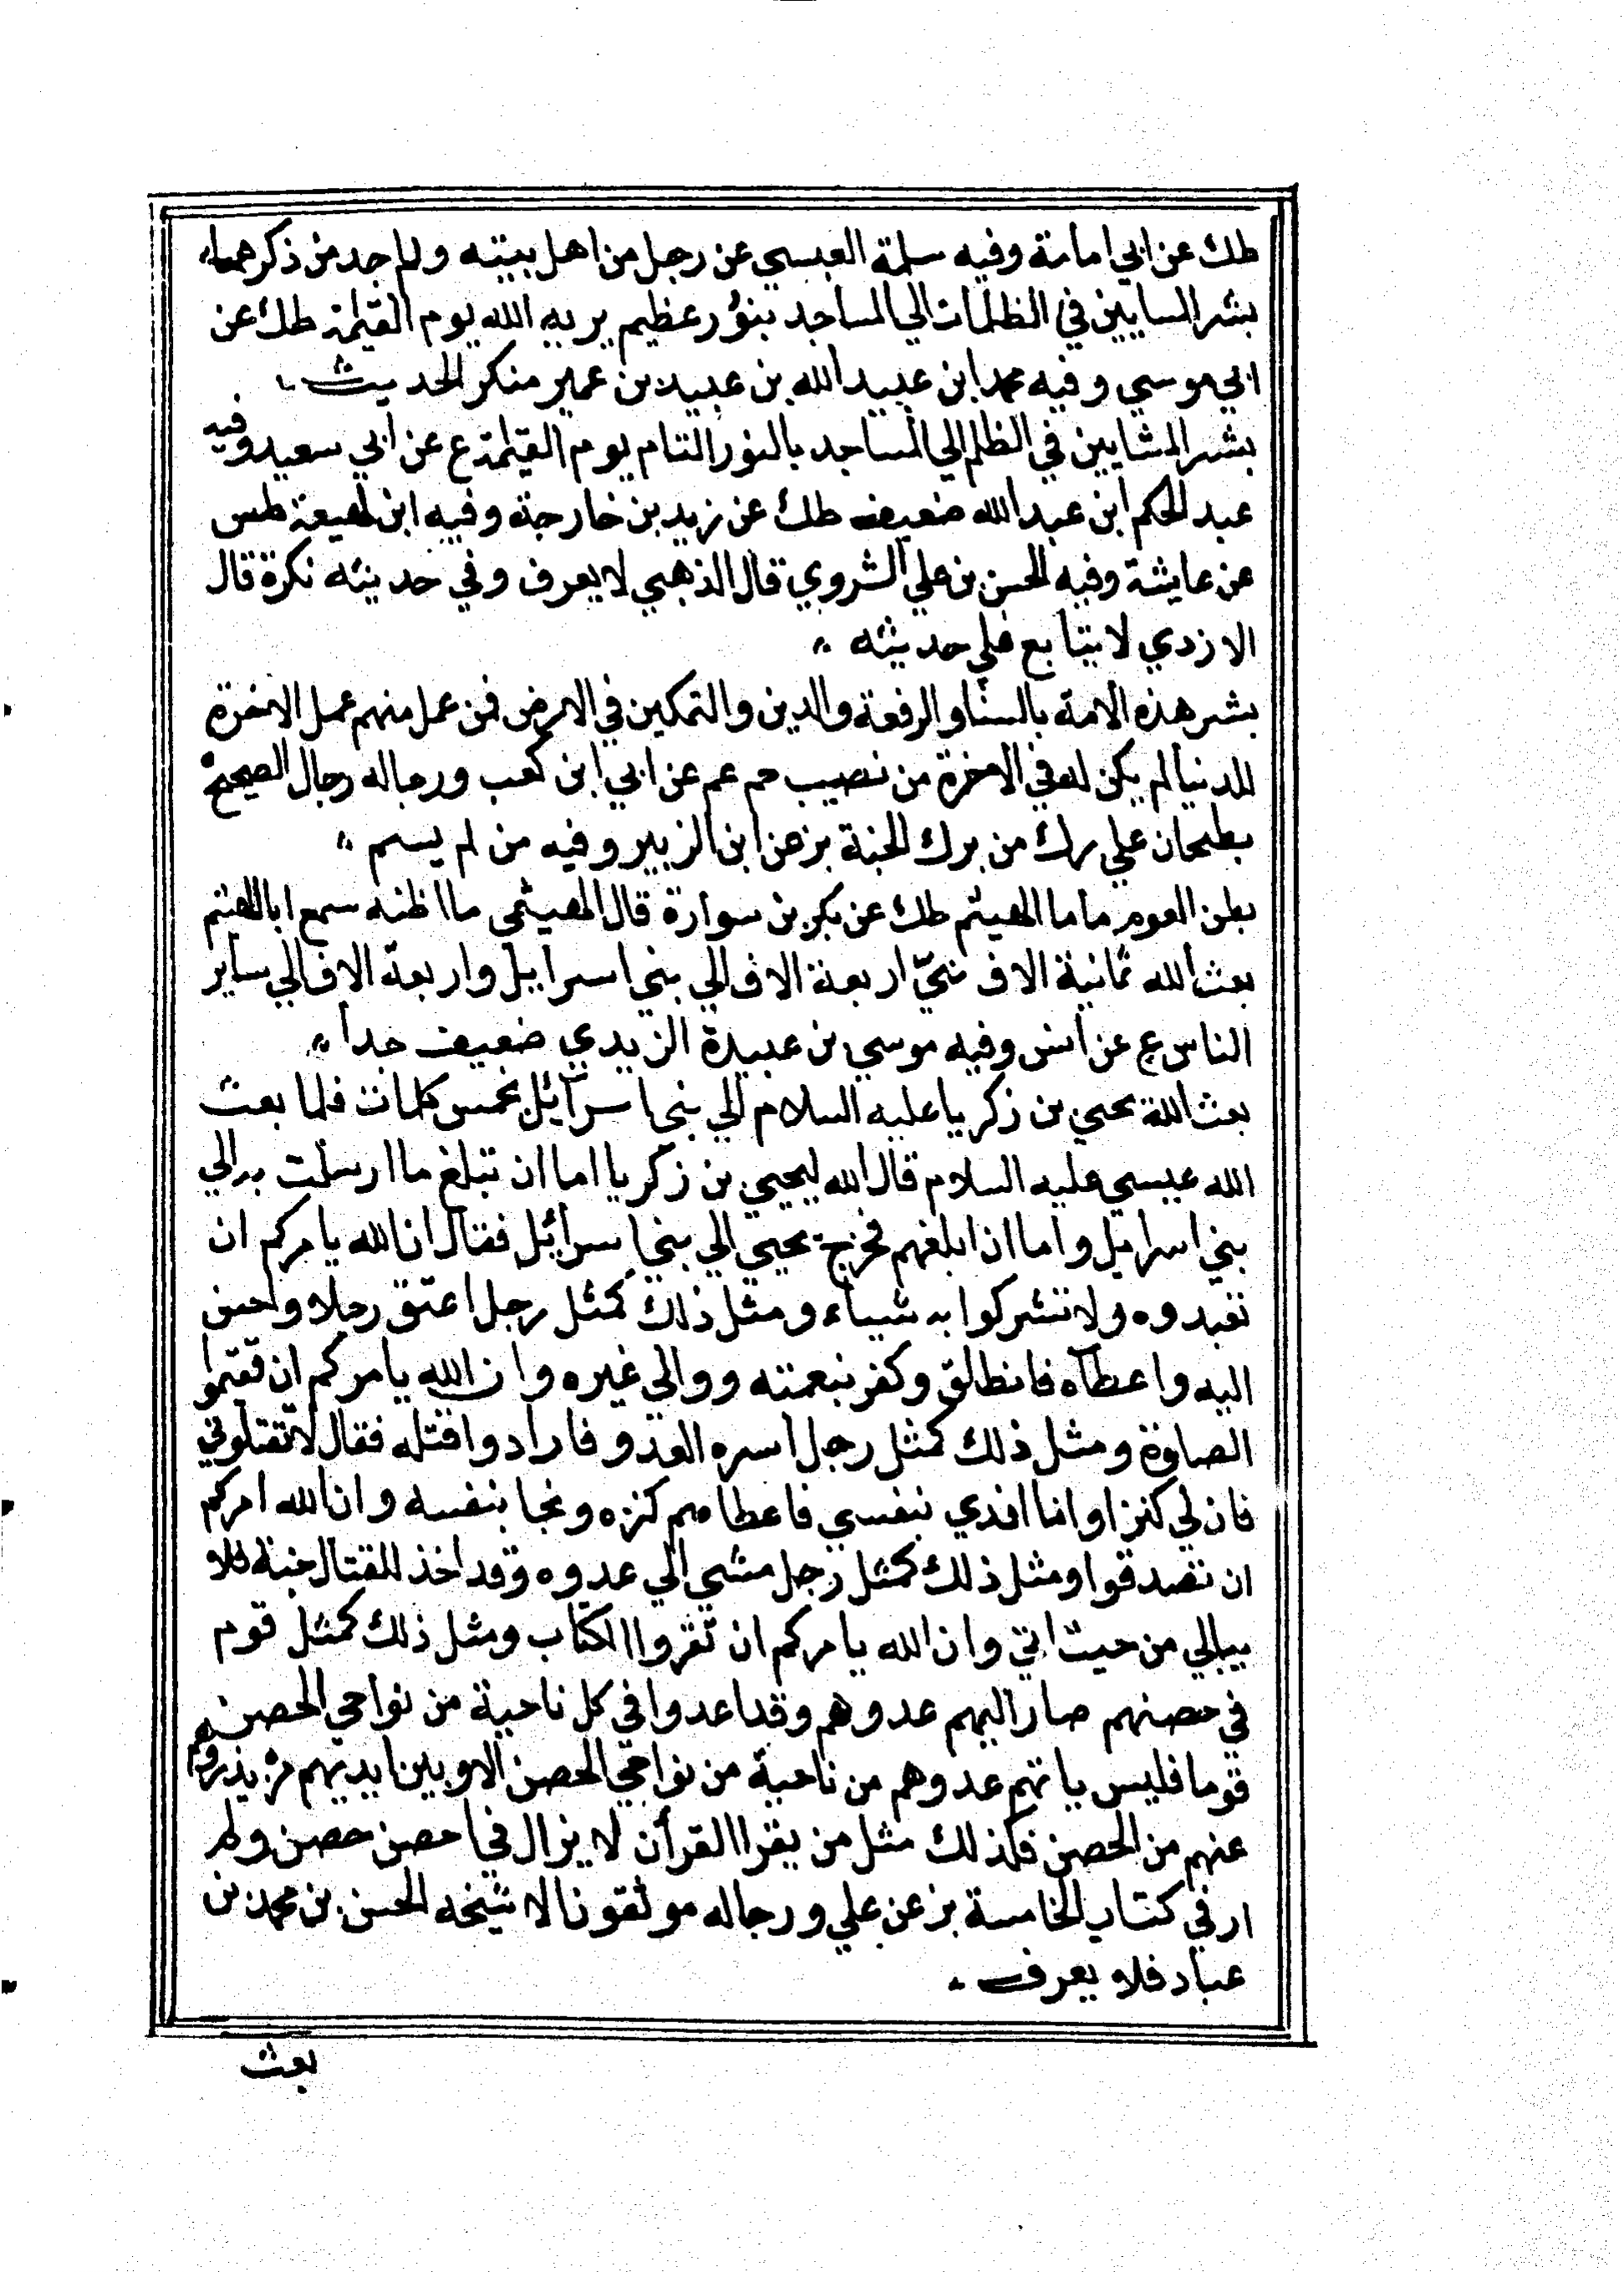 طك عن ابي امامة وفيه سلمة العبسي عن رجل من اهل بيته ولم اجد من ذكرهما
بشر السايين في الظلمات الي المساجد بنور عظيم يريه الله يوم القيمة طك عن
ابي موسي وفيه محمد ابن عبيد الله بن عبيد بن عمير منكر الحديث
بشر المشايين في الظلم الي المساجد بالنور التام يوم القيمة ع عن ابي سعيد وفيه
عبد الحكم ابن عبد الله ضعيف طك عن زيد بن خارجة وفيه ابن لهيعة طس
عن عايشة وفيه الحسن بن علي الشروي قال الذهبي لا يعرف وفي حديثه نكرة قال
الازدي لا يتابع علي حديثه
بشر هذه الامة بالسنا والرفعة والدين والتمكين في الارض فمن عمل منهم عمل الاخرة
للدنيا لم يكن له في الاخرة من نصيب حم عم عن ابي ابن كعب ورجاله رجال الصحيح
بطحان علي برك من برك الجنة بز عن ابن الزبير وفيه من لم يسم
بطن القوم ماما الهيثم طك عن بكر بن سوارة قال الهيثمي ما اظنه سمع ابا الهيثم
بعث الله ثمانية الاف نبيّ اربعة الاف الي بني اسرايل واربعة الاف الي ساير
الناس ع عن انس وفيه موسي بن عبيدة الزيدي ضعيف جدا
بعث الله يحيي بن زكريا عليه السلام الي بني اسرآئل بخمس كلمات فلما بعث
الله عيسي عليه السلام قال الله ليحيي بن زكريا اما ان تبلغ ما ارسلت به الي
بني اسرايل واما ان ابلغهم فخرج يحيي الي بني اسرائل فقال ان الله يامركم ان
تعبدوه ولا تشركوا به شياء ومثل ذلك كمثل رجل اعتق رجلا واحسن
اليه واعطاه فانطلق وكفر بنعمته ووالي غيره وان الله يامركم ان تقيموا
الصلوة ومثل ذلك كمثل رجل اسره العدو فارادوا قتله فقال لا تقتلوني
فان لي كنزا وانا افدي بنفسي فاعطاهم كنزه ونجا بنفسه وان الله امركم
ان تصدقوا ومثل ذلك كمثل رجل مشي الي عدوه وقد اخذ للقتال جنة فلا
يبالي من حيث اتي وان الله يامركم ان تقروا الكتاب ومثل ذلك كمثل قوم
في حصنهم صار اليهم عدوهم وقد اعدوا في كل ناحية من نواحي الحصن
قوما فليس ياتهم عدوهم من ناحية من نواحي الحصن الا وبين ايديهم من
عنهم من الحصن فكذلك مثل من يقرا القرآن لا يزال في احصن حصن ولم
ار في كتاب الخامسة بز عن علي ورجاله موثقون الا شيخه الحسن بن محمد بن
عباد فلا يعرف
بعث